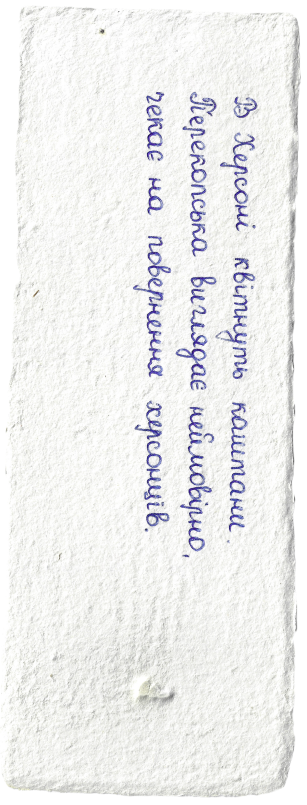 В Херсоні квітнуть каштани.
Перекопська виглядає неймовірно,
чекає на повернення херсонців.